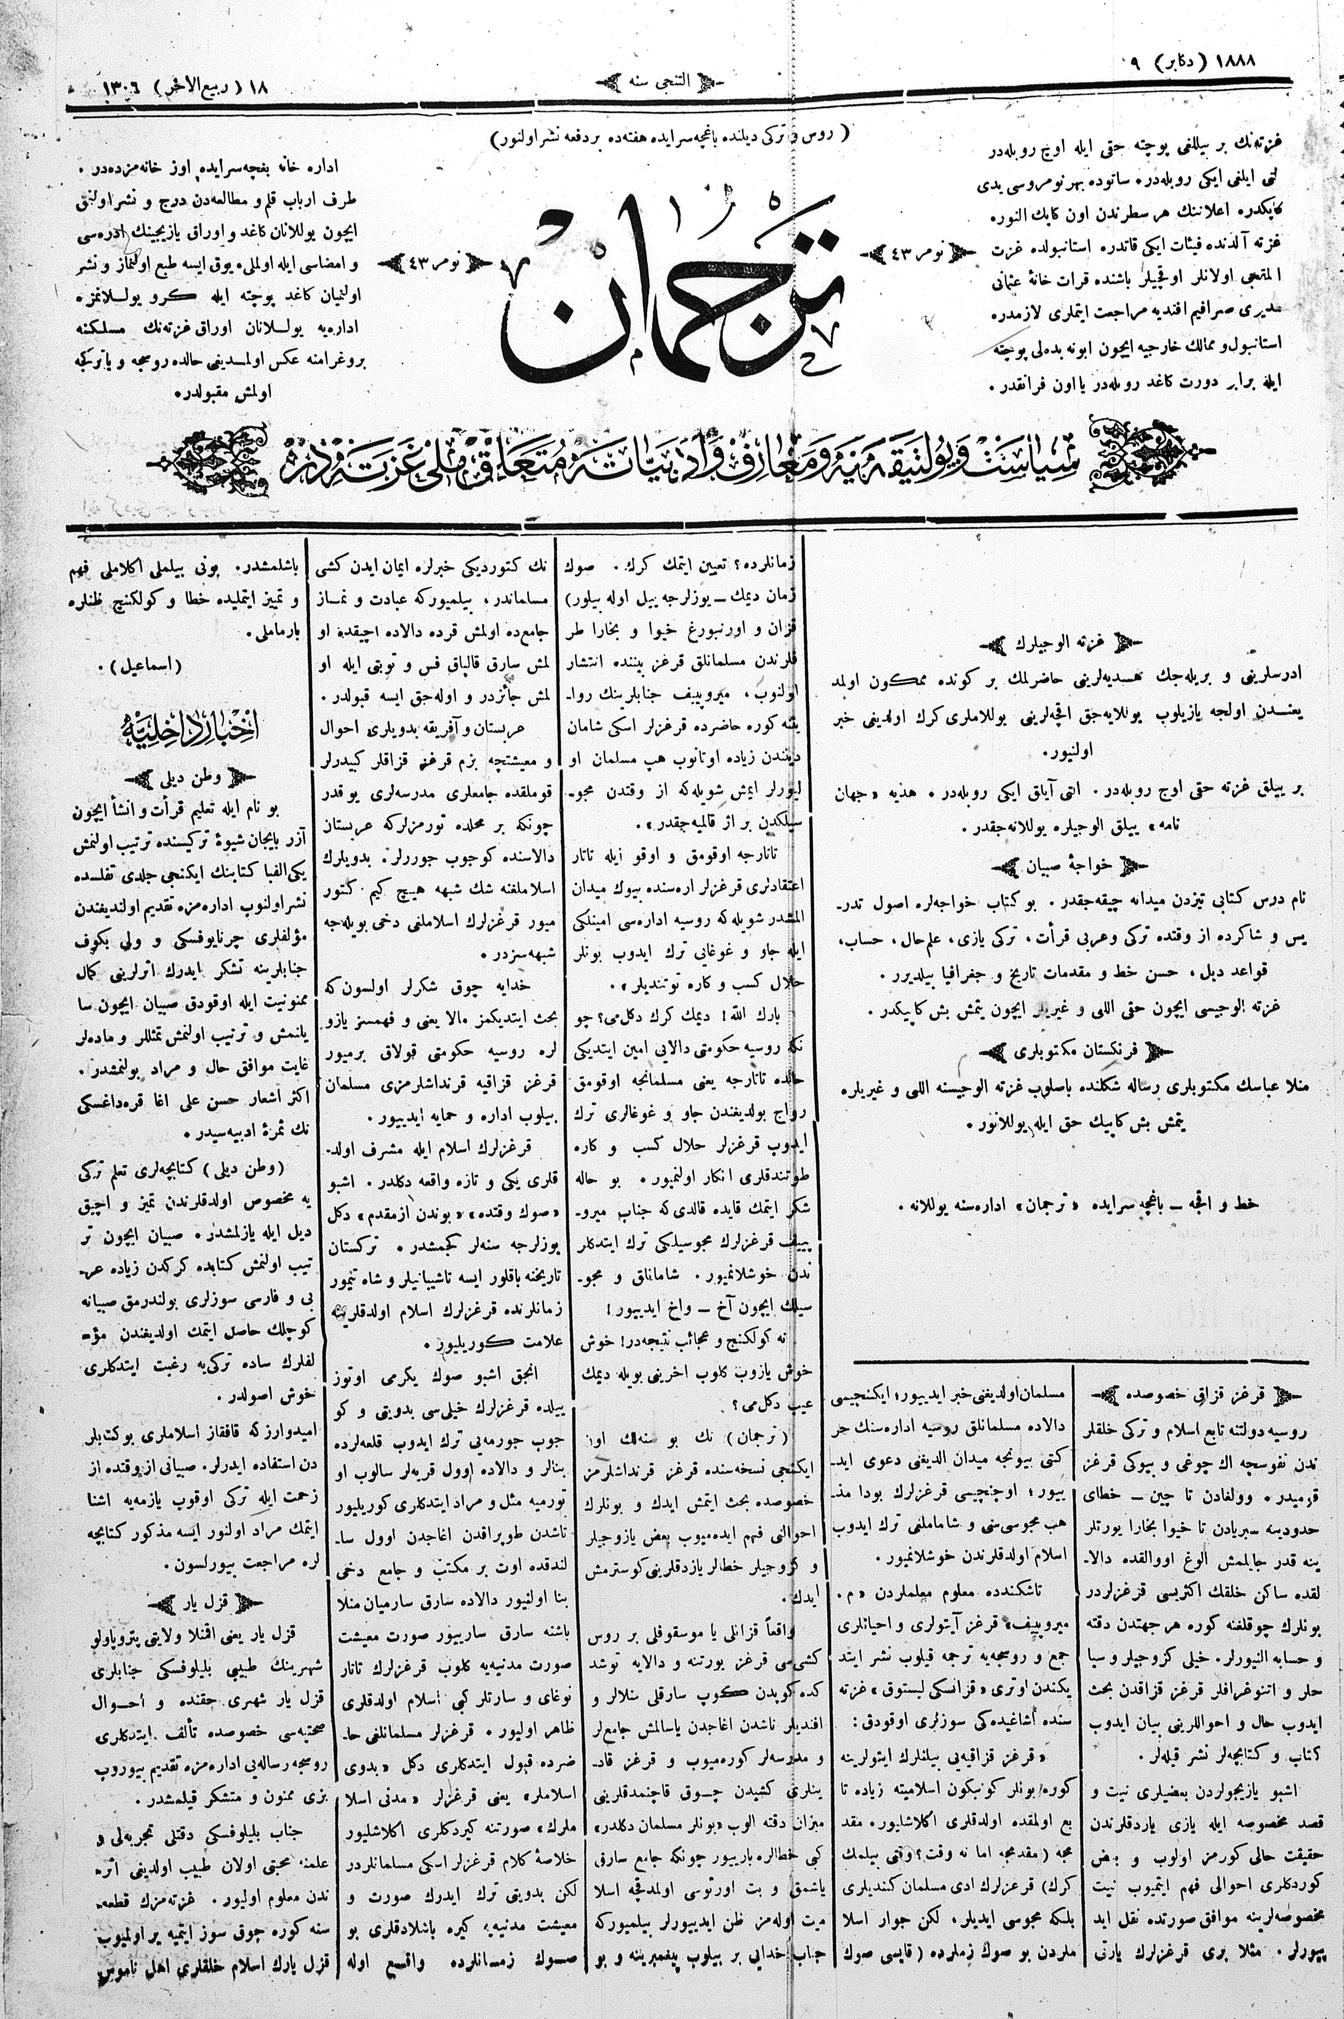 ١٨٨٨ (دكابر) ٩
التنجى سنه
١٨ (ربيع الاخر) ١٣٠٦
(روس و تركى ديلنده باغچه سرايده هفته ده بر دفعه نشر اولنور)
غزته نك بر ييللغى پوچته حقى ايله اوچ روبله در
لتى ايلغى ايكى روبله در. ساتوده بهر نومروسى يدى
كاپكدر. اعلاننك هر سطرندن اون كاپك النور.
غزته آلدنده فيئات ايكى قاتدر. استانبولده غزت
المقجى اولانلر اوقجيلر باشنده قرات خانهٔ عثمانى
مديرى صرافيم افنديه مراجعت ايتملرى لازمدر.
استانبول و ممالك خارجيه ايچون ابونه بدلى پوچته
ايله برابر دورت كاغد روبله در يا اون فرانقدر.
نومر ٤٣
ترجمان
نومر ٤٣
اداره خانه بغچه سرايده اوز خانه مزده در.
طرف ارباب قلم و مطالعه دن درج و نشر اولنمق
ايچون يوللانان كاغد و اوراق يازيجينك ادره سى
و امضاسى ايله اولملى. يوق ايسه طبع اولنماز و نشر
اولنميان كاغد پوچته ايله كرو يوللانمز.
اداريه يوللانان اوراق غزته نك مسلكنه
پروغرامنه عكس اولمديغى حالده روسجه و يا تركجه
اولمش مقبولدر.
سياست و پولتيقه مدنيه و معارف و ادبياته متعلق ملى غزته در
غزته الوجيلرك
ادرسلرينى و بريله جك هديه لرينى حاضرلمك بر كونده ممكون اولمد
يغندن اولجه يازيلوب يوللايه جق اقچه لرينى يوللاملرى كرك اولديغى خبر
اولنيور.
بر ييلق غزته حقى اوج روبله در. التى آياق ايكى روبله در. هذيه «جهان
نامه» ييلق الوجيلره يوللانه جقدر.
خواجهٔ صبيان
نام درس كتابى تيزدن ميدانه چيقه جقدر. بو كتاب خواجه لره اصول تدر-
يس و شاكرده از وقتده تركى و عربى قرأت، تركى يازى، علم حال، حساب،
قواعد ديل، حسن خط و مقدمات تاريخ و جغرافيا بيلديرر.
غزته الوجيسى ايچون حقى اللى و غيريلر ايچون يتمش بش كاپيكدر.
فرنكستان مكتوبلرى
منلا عباسك مكتوبلرى رساله شكلنده باصلوب غزته الوجيسنه اللى و غيريلره
يتمش بش كاپيك حق ايله يوللانور.
خط و اقچه — باغچه سرايده «ترجمان» اداره سنه يوللانه.
قرغز قزاق خصوصده
روسيه دولتنه تابع اسلام و تركى خلقلر
ندن نفوسجه اك چوغى و بيوكى قرغز
قرميدر. وولغادن تا چين — خطاى
حدودينه سبريادن تا خيوا بخارا يورتلر
ينه قدر جايلمش الوغ اووالقده دالا-
لقده ساكن خلقك اكثريسى قرغزلردر
بونلرك چوقلغنه كوره هر جهتدن دقته
و حسابه النيورلر. خيلى كزوجيلر و سيا
حلر و اتنوغرافلر قرغز قزاقدن بحث
ايدوب حال و احواللرينى بيان ايدوب
كتاب و كتابچه لر نشر قيله لر.
اشبو يازيجولردن بعضيلرى نيت و
قصد مخصوصه ايله يازى ياردقلرندن
حقيقت حالى كورمز اولوب و بعض
كوردكلرى احوالى فهم ايتميوب نيت
مخصوصه لرينه موافق صورتده نقل ايد
ييورلر. مثلا برى قرغزلرك يارتى
مسلمان اولديغنى خبر ايدييور؛ ايكنچيسى
دالاده مسلمانلق روسيه اداره سنك حر
كتى بيونجه ميدان الديغنى دعوى ايد-
ييور؛ اوچنچيسى قرغزلرك بودا مذ-
هب مجوسى سنى و شاماملغنى ترك ايدوب
اسلام اولدقلرندن خوشلانميور.
تاشكندده معلوم معلملردن «م.
ميروپييف» قرغز آيتولرى و احياتلرى
جمع و روسجه يه ترجمه قيلوب نشر ايتد
يكندن اوترى «قزانسكى ليستوق» غزته
سنده اشاغيده كى سوزلرى اوقودق:
«قرغز قزاقيه يى بيلنلرك ايتولرينه
كوره بونلر كونبكون اسلاميته زياده تا
بع اولمقده اولدقلرى اكلاشليور. مقد
مجه (مقدمجه اما نه وقت؟ وقتى بيلمك
كرك) قرغزلرك ادى مسلمان كنديلرى
بلكه مجوسى ايديلر، لكن جوار اسلا
ملردن بو صوك زملرده (قايسى صوك
زمانلرده؟ تعيين ايتمك كرك. صوك
زمان ديمك — يوزلرجه ييل اوله بيلور)
قزان و اورنبورغ خيوا و بخارا طر
فلرندن مسلمانلق قرغز بيننده انتشار
اولنوب، ميروپييف جنابلرينك روا-
يتنه كوره حاضرده قرغزلر اسكى شامان
دينندن زياده اوتانوب هپ مسلمان او
ليورلر ايمش شويله كه از وقتدن مجو-
سيلكدن بر اثر قالميه جقدر».
تاتارجه اوقومق و اوقو ايله تاتار
اعتقادلرى قرغزلر اره سنده بيوك ميدان
المشدر شويله كه روسيه اداره سى امينلكى
ايله جاو و غوغايى ترك ايدوب بونلر
حلال كسب و كاره توتنديلر».
بارك الله! ديمك كرك دكل مى؟ چو
نكه روسيه حكومتى دالايى امين ايتديكى
حالده تاتارجه يعنى مسلمانجه اوقومق
رواج بولديغندن جاو و غوغالرى ترك
ايدوب قرغزلر حلال كسب و كاره
طوتندقلرى انكار اولنميور. بو حاله
شكر ايتمك قايده قالدى كه جناب ميرو-
پييف قرغزلرك مجوسيلكى ترك ايتدكلر
ندن خوشلانميور. شامانلق و مجو-
سيلك ايچون آخ — واخ ايدييور!
نه كولكنج و عجائب نتيجه در! خوش
خوش يازوب كلوب اخرينى بويله ديمك
عيب دكل مى؟
(ترجمان) نك بو سنه لك اون
ايكنجى نسخه سنده قرغز قرنداشلرمز
خصوصده بحث ايتمش ايدك و بونلرك
احوالنى فهم ايده ميوب بعض يازوجيلر
و كزوجيلر خطالر يازدقلرينى كوسترمش
ايدك.
واقعاً قزانلى يا موسقوفلى بر روس
كشى سى قرغز يورتنه و دالايه توشد
كده كوپدن كوپ سارقلى منلالر و
افنديلر تاشدن اغاجدن ياسالمش جامعلر
و مدرسه لر كوره ميوب و قرغز قاد-
ينلرى كشيدن چوق قاچنمدقلرينى
ميزان دقته الوب «بونلر مسلمان دكلدر»
كبى خطالره باريبور چونكه جامع سارق
ياشمق و بت اورتوسى اولمدقجه اسلا
ميت اوله مز ظن ايدييورلر بيلميوركه
جناب خدايى بر بيلوب پيغمبرينه و بو
نك كتورديكى خبرلره ايمان ايدن كشى
مسلماندر، بيلميوركه عبادت و نماز
جامعده اولمش قرده دالاده اچيقده او
لمش سارق قالپاق فس و توبتى ايله او
لمش جائزدر و اوله جق ايسه قبولدر.
عربستان و آفريقه بدويلرى احوال
و معيشتچه بزم قرغز قزاقلر كبيدرلر
قوملقده جامعلرى مدرسه لرى يوقدر
چونكه بر محلده تورمزلركه عربستان
دالاسنده كوجوب جوررلر. بدويلرك
اسلاملغنه شك شبهه هيچ كيم كتور
ميور قرغزلرك اسلاملغى دخى بويله جه
شبهه سزدر.
خدايه چوق شكرلر اولسون كه
بحث ايتديكمز بالا يعنى و فهمسز يازو
لره روسيه حكومتى قولاق برميور
قرغز قزاقيه قرنداشلرمزى مسلمان
بيلوب اداره و حمايه ايدييور.
قرغزلرك اسلام ايله مشرف اولد-
قلرى يكى و تازه واقعه دكلدر. اشبو
«صوك وقتده» «بوندن ازمقدم» دكل
يوزلرجه سنه لر كچمشدر. تركستان
تاريخنه باقلور ايسه تاشيبانيلر و شاه تيمور
زمانلرنده قرغزلرك اسلام اولدقلرينه
علامت كوريليور.
انجق اشبو صوك يكرمى اوتوز
ييلده قرغزلرك خيلى سى بدويتى و كو
جوب جورمه يى ترك ايدوب قلعه لرده
بنالر و دالاده اوول قريه لر سالوب او
تورميه مثل و مراد ايتدكلرى كوريليور
تاشدن طوپراقدن اغاجدن اوول سا-
لندقده اوت بر مكتب و جامع دخى
بنا اولنيور دالاده سارق سارميان منلا
باشنه سارق ساريبور صورت معيشت
صورت مدنيه يه كلوب قرغزلرك تاتار
نوغاى و سارتلر كبى اسلام اولدقلرى
ظاهر اوليور. قرغزلر مسلمانلغى حا-
ضرده قبول ايتدكلرى دكل «بدوى
اسلاملر» يعنى قرغزلر «مدنى اسلا
ملرك» صورتنه كيردكلرى اكلاشليور
خلاصهٔ كلام قرغزلر اسكى مسلمانلردر
لكن بدويتى ترك ايدرك صورت و
معيشت مدنيه يه كيره باشلادقلرى بو
صوك زمانلرده واقع اوله
باشلمشدر. بونى بيلملى اكلاملى فهم
و تمييز ايتمليده خطا و كولكنج ظنلره
بارماملى.
(اسماعيل).
اخبار داخليه
وطن ديلى
بو نام ايله تعليم قرأت و انشأ ايچون
آزر بايجان شيوهٔ تركيسنده ترتيب اولنمش
يكى الفبا كتابنك ايكنجى جلدى تفلسده
نشر اولنوب اداره مزه تقديم اولنديغندن
مؤلفلرى چرنايوفسكى و ولى بكوف
جنابلرينه تشكر ايدرك اثرلرينى كمال
ممنونيت ايله اوقودق صبيان ايچون سا
يلنمش و ترتيب اولنمش تمثللر و ماده لر
غايت موافق حال و مراد بولنمشدر.
اكثر اشعار حسن على اغا قره داغسكى
نك ثمرهٔ ادبيه سيدر.
(وطن ديلى) كتابچه لرى تعلم تركى
يه مخصوص اولدقلرندن تميز و اچيق
ديل ايله يازلمشدر. صبيان ايچون تر
تيب اولنمش كتابده كركدن زياده عر-
بى و فارسى سوزلرى بولندرمق صبيانه
كوچلك حاصل ايتمك اولديغندن مؤ-
لفلرك ساده تركى يه رغبت ايتدكلرى
خوش اصولدر.
اميدوارز كه قافقاز اسلاملرى بو كتابلر
دن استفاده ايدرلر. صبيانى از وقتده از
زحمت ايله تركى اوقوب يازمه يه اشنا
ايتمك مراد اولنور ايسه مذكور كتابچه
لره مراجعت بيورلسون.
قزل يار
قزل يار يعنى اقمنلا ولايتى پتروپاولو
شهرينك طبيبى بليلوفسكى جنابلرى
قزل يار شهرى حقنده و احوال
صحتيه سى خصوصده تألف ايتدكلرى
روسجه رساله يى اداره مزه تقديم بيوروب
بزى ممنون و متشكر قيلمشدر.
جناب بليلوفسكى دقتلى تجربه لى و
علمه محبتى اولان طبيب اولديغى اثر
ندن معلوم اوليور. غزته مزك قطعه
سنه كوره چوق سوز ايتميه ير اولميوب
قزل يارك اسلام خلقلرى اهل ناموس